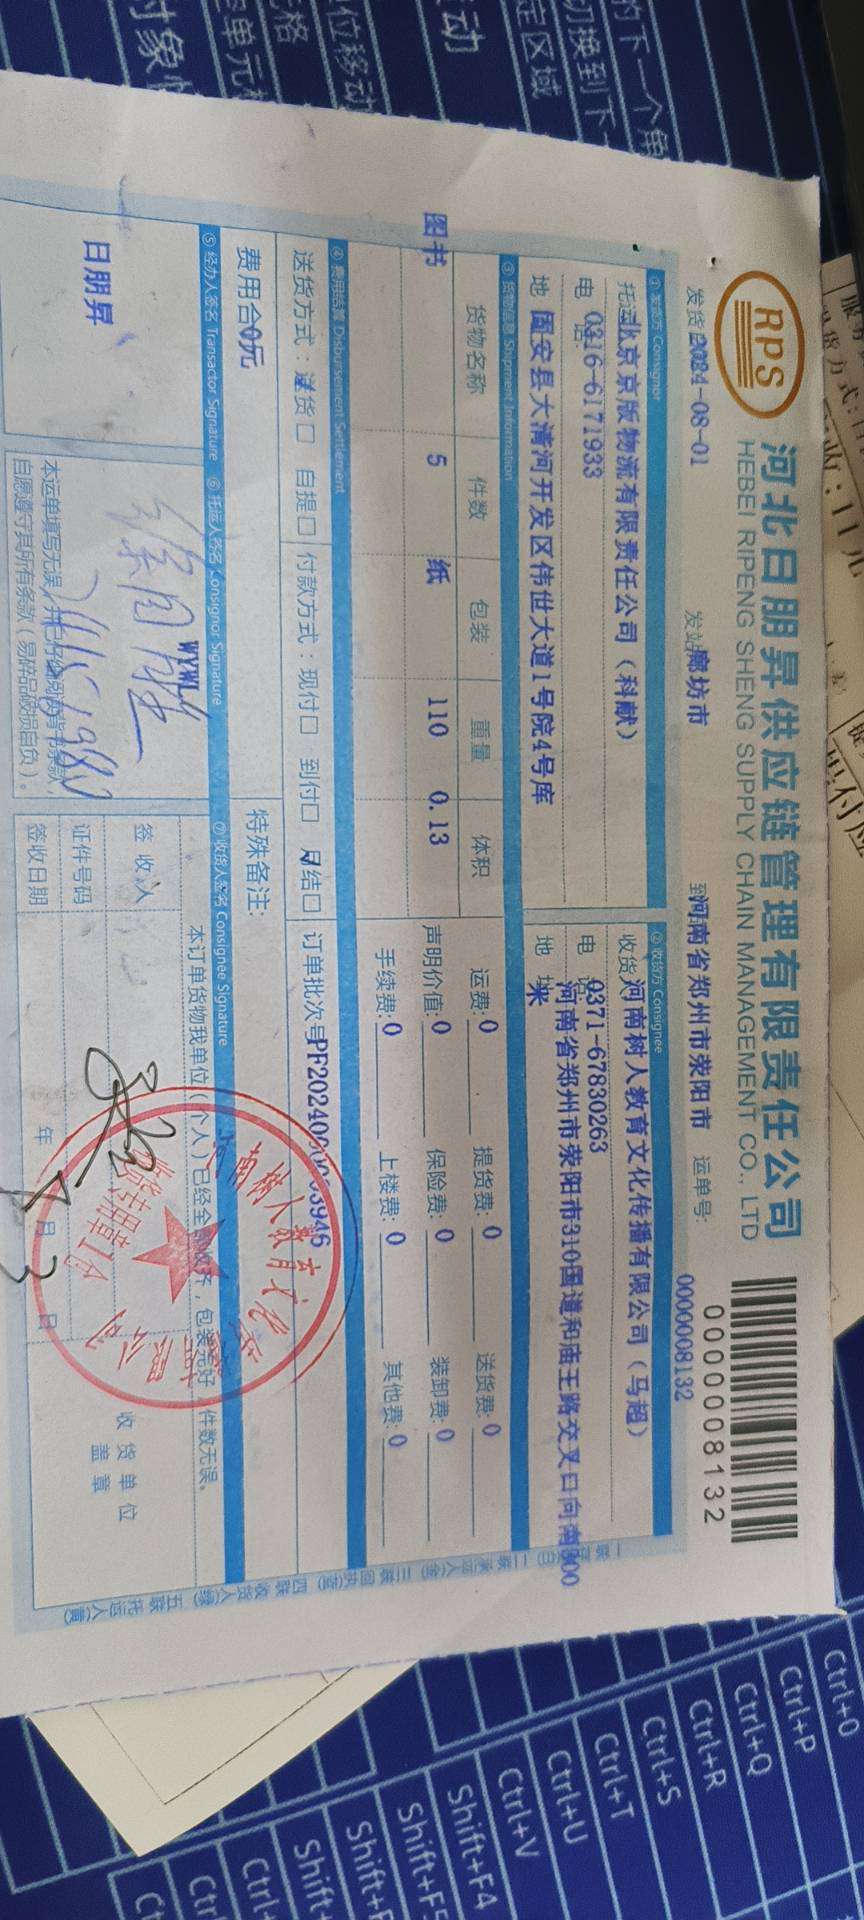 RPS
河北日朋昇供应链管理有限责任公司
HEBEI RIPENG SHENG SUPPLY CHAIN MANAGEMENT CO., LTD
0000008132
发货 2024-08-01 发站 廊坊市 到 河南省郑州市荥阳市 运单号: 0000008132
① 发货方 Consignor
托运 北京京版物流有限责任公司（科献）
电话 0316-6171933
地 固安县大清河开发区伟世大道1号院4号库
② 收货方 Consignee
收货 河南树人教育文化传播有限公司（马超）
电话 0371-67830263
地址 河南省郑州市荥阳市310国道和庙王路交叉口向南300
米
③ 货物信息 Shipment Information
货物名称 件数 包装 重量 体积
图书 5 纸 110 0.13
运费: 0 提货费: 0 送货费: 0
声明价值: 0 保险费: 0 装卸费: 0
手续费: 0 上楼费: 0 其他费: 0
④ 费用结算 Disbursement Settlement
送货方式：送货口 自提口 付款方式：现付口 到付口 月结口 订单批次号
费用合 0元
特殊备注:
⑤ 经办人签名 Transactor Signature ⑥ 托运人签名 Consignor Signature ⑦ 收货人签名 Consignee Signature
日朋昇
WYWL
本运单填写无误，并已仔细阅读背书条款，
自愿遵守其所有条款（易碎品破损自负）。
本订单货物我单位（个人）已经全部收齐，包装完好，件数无误。
签收人
证件号码
签收日期
年 8 月 3 日
收货单位
盖章
河南树人教育文化传播有限公司
一联 二联承运人 三联回执 四联收货人 五联托运人
对象
单元格
位移动
定区域
切换到下一
的下一个角
动
Ctrl+O
Ctrl+P
Ctrl+Q
Ctrl+R
Ctrl+S
Ctrl+T
Ctrl+U
Ctrl+V
Shift+F4
Shift+F5